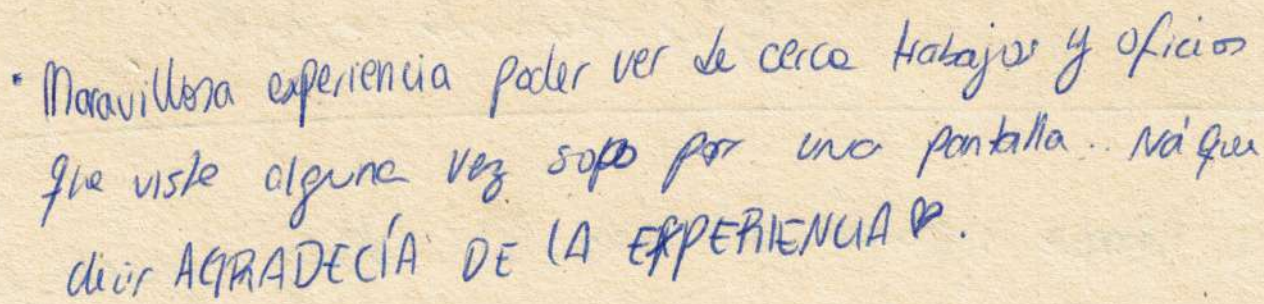 · Maravillosa experiencia poder ver de cerca trabajos y oficios
que viste alguna vez solo por una pantalla.. Ná que
decir AGRADECÍA DE LA EXPERIENCIA ♥.